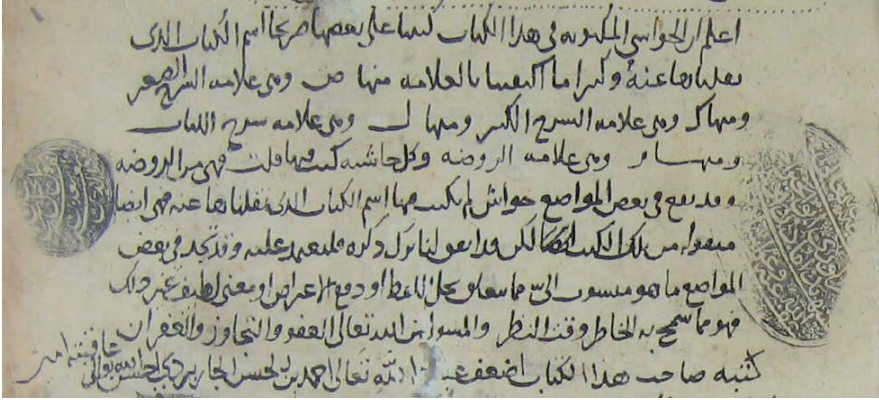 اعلم ان الحواشي المكتوبه في هذا الكتاب كتبنا على بعضها صريحا اسم الكتاب الذي
نقلناها عنه وكثيرا ما اكتفينا بالعلامه منها ص وهي علامه الشرح الصغير
ومنها ك وهي علامه الشرح الكبير ومنها ل وهي علامه شرح اللباب
ومنها ر وهي علامه الروضه وكل حاشيه كتب فيها قلت فهي من الروضه
وقد يقع في بعض المواضع حواش لم يكتب فيها اسم الكتاب الذي نقلناها عنه فهي ايضا
منقوله من تلك الكتب لكن قد اتفق لنا ترك ذكره فليعتمد عليه وقد تجد في بعض
المواضع ما هو منسوب الي مما يتعلق بحل اللفظ او دفع الاعتراض او معنى لطيف غير ذلك
فهو مما سمح به الخاطر وقت النظر والمسؤل من الله تعالى العفو والتجاوز والغفران
كتبه صاحب هذا الكتاب اضعف عباد الله تعالى احمد بن الحسن الجاربردي احسن الله تعالى عاقبته امين